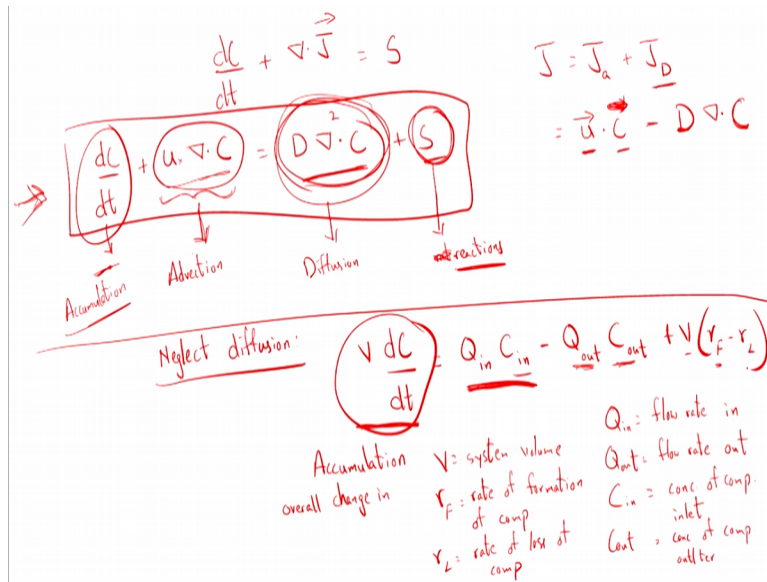 dC/dt + ∇·J⃗ = S
J = J_a + J_D
= u⃗·C - D∇·C
dC/dt + u·∇·C = D∇²·C + S
Accumulation
Advection
Diffusion
reactions
Neglect diffusion:
V dC/dt = Q_in C_in - Q_out C_out + V(r_F - r_L)
Accumulation
overall change in
V = system volume
r_F = rate of formation
of comp
r_L = rate of loss of
comp
Q_in = flow rate in
Q_out = flow rate out
C_in = conc of comp.
inlet
Cout = conc of comp
outlter